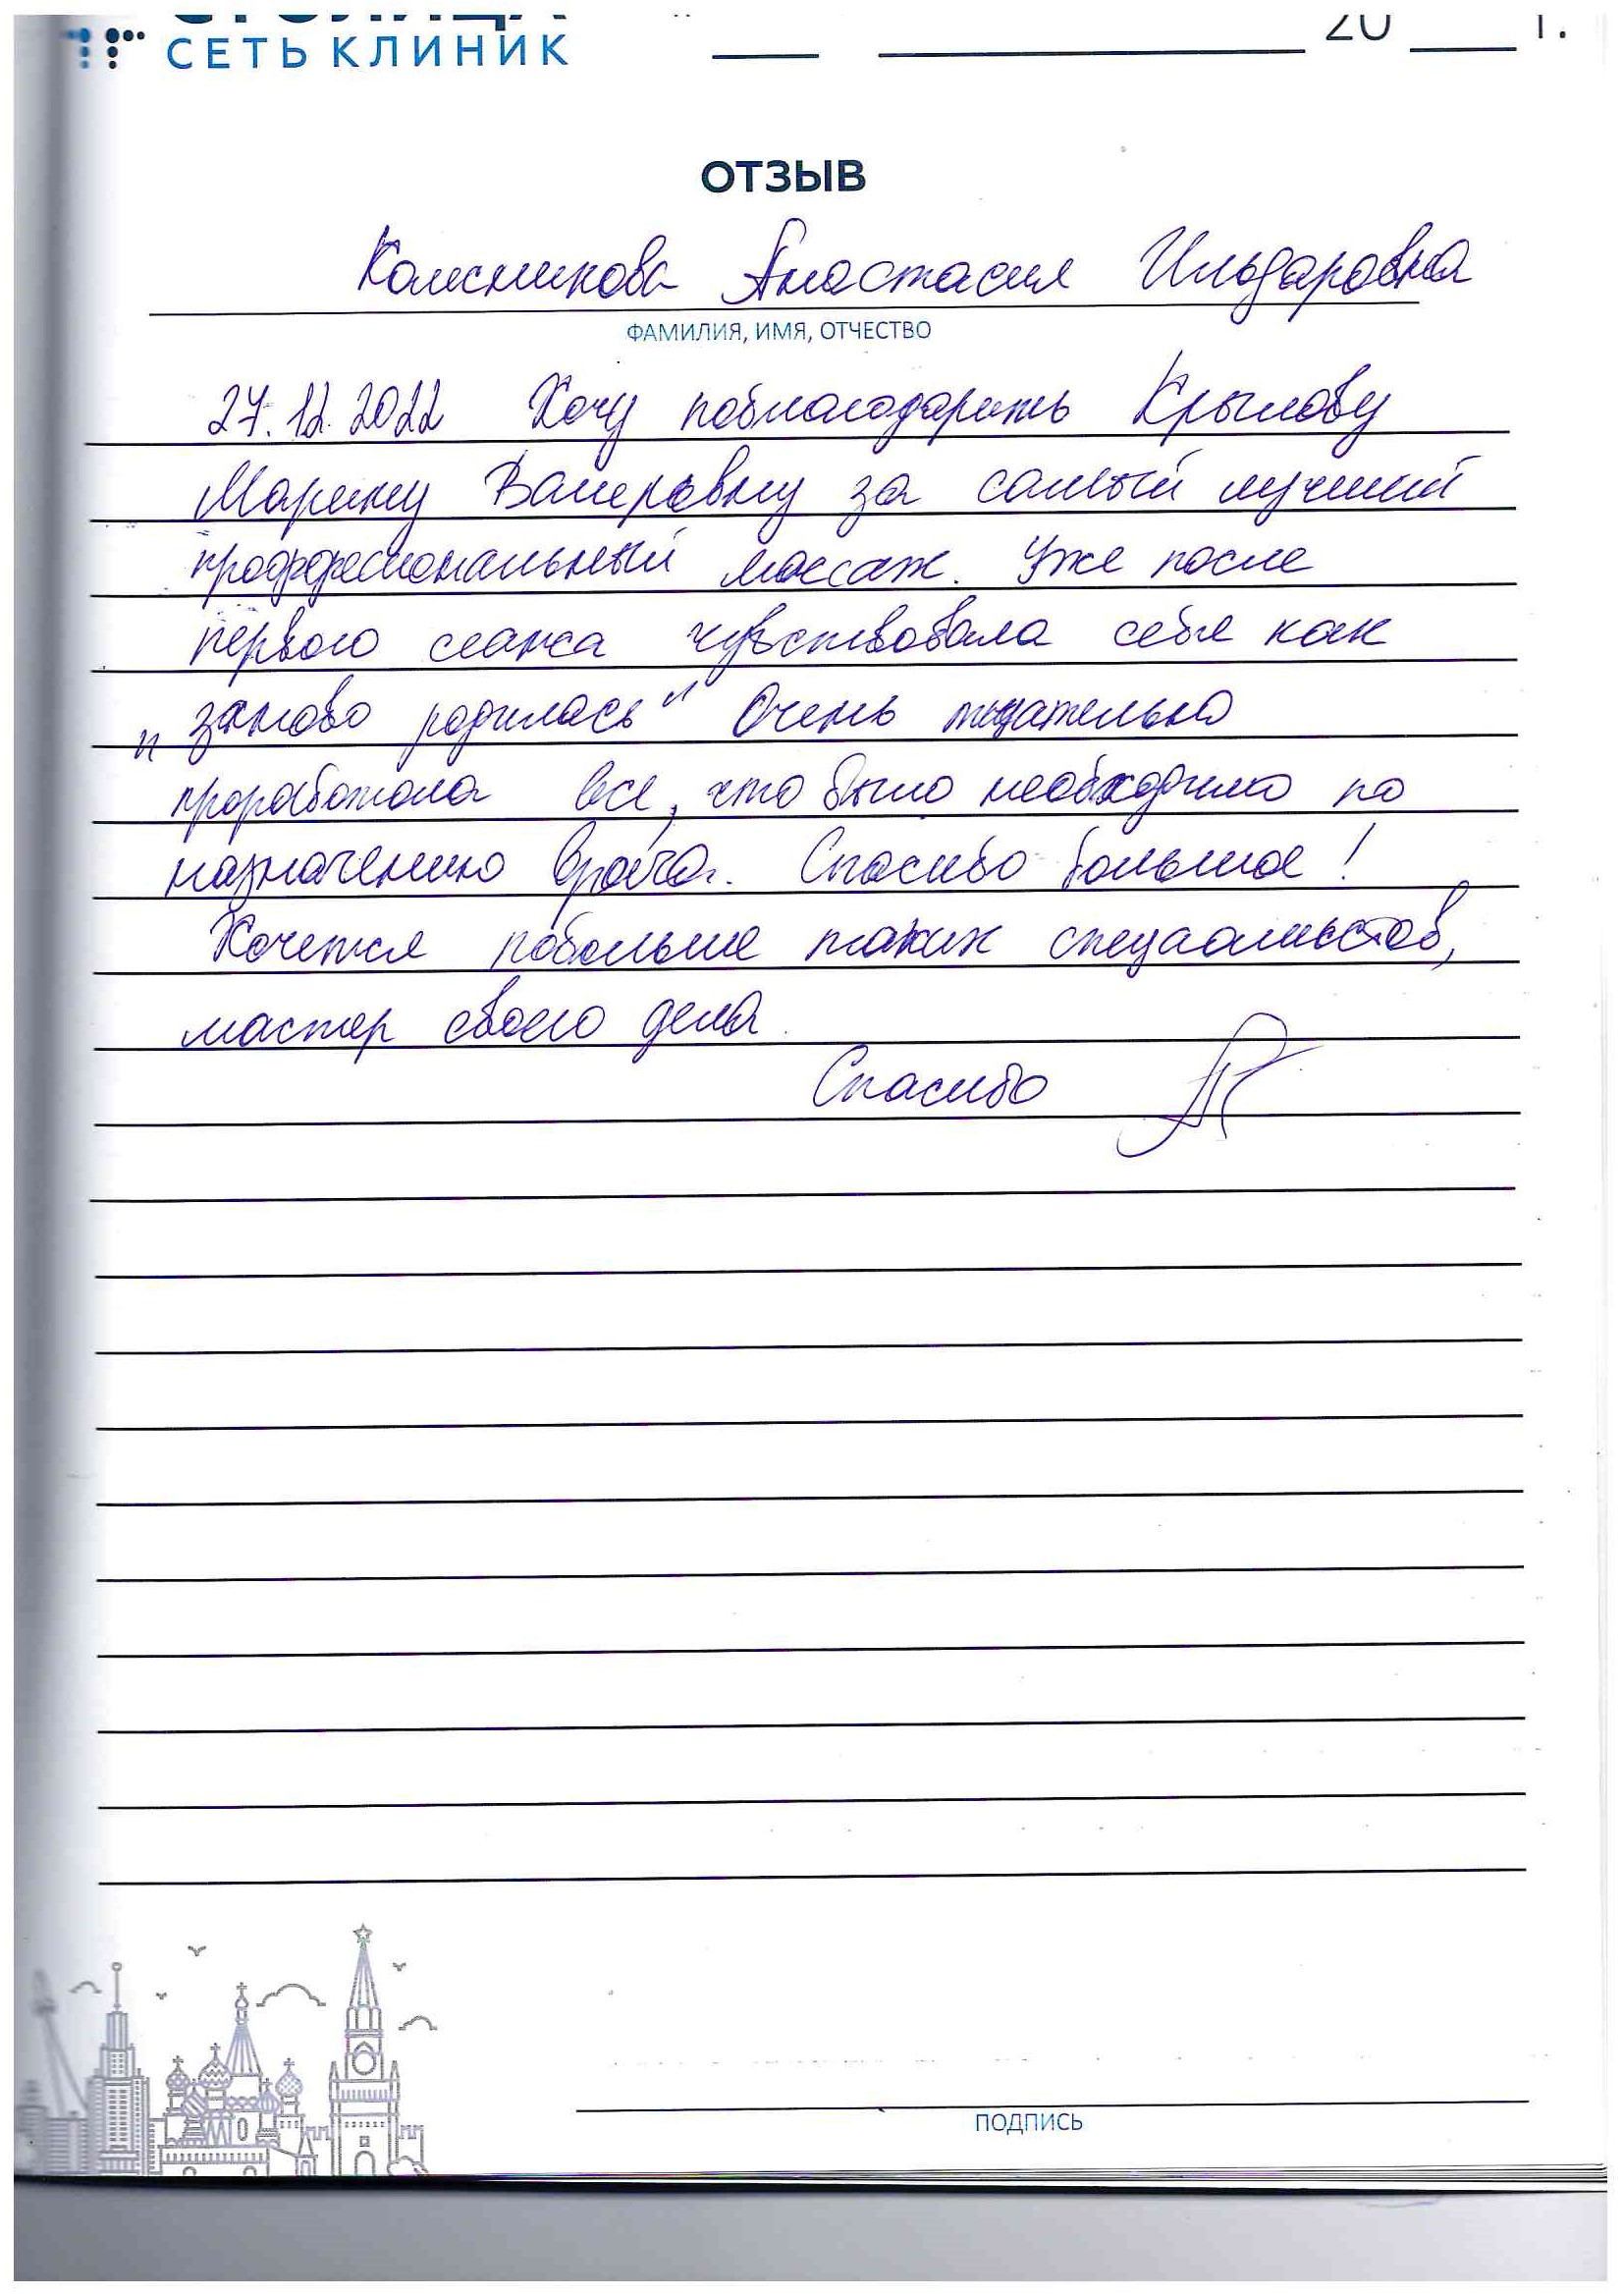 СТОЛИЦА
СЕТЬ КЛИНИК
" 20 г.
ОТЗЫВ
Колесникова Анастасия Ильдаровна
ФАМИЛИЯ, ИМЯ, ОТЧЕСТВО
27.12.2022 Хочу поблагодарить Крылову
Марину Валеровну за самый лучший
проффесиональный массаж. Уже после
первого сеанса чувствовала себя как
„заново родилась" Очень тщательно
проработала все, что было необходимо по
назначению врача. Спасибо большое!
Хочется побольше таких специалистов,
мастер своего дела.
Спасибо
ПОДПИСЬ